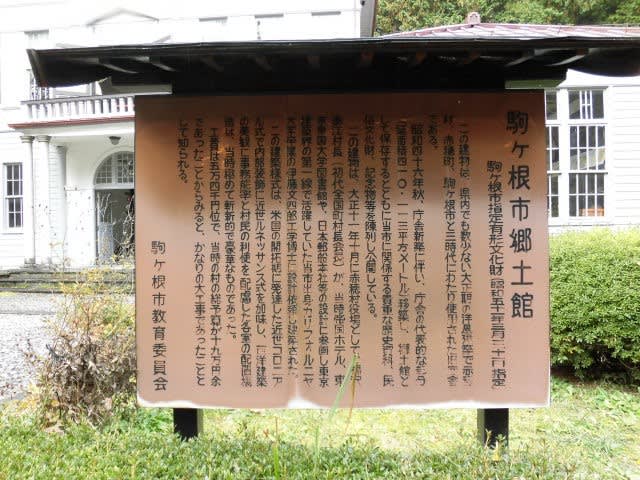 駒ヶ根市郷土館
駒ヶ根市指定有形文化財 昭和五十年三月二十一日指定
この建物は、県内でも数少ない大正期の洋風建築で赤穂
村、赤穂町、駒ヶ根市と三時代にわたり使用された旧庁舎
である。
昭和四十六年秋、庁舎新築に伴い、庁舎の代表的な部分
（延面積四一〇・一一三平方メートル）移築し、郷土館と
して保存するとともに当市に関係する貴重な歴史資料、民
俗文化財、記念物等を陳列し公開している。
この建物は、大正十一年十月に赤穂村役場として、福沢
泰江村長（初代全国町村長会長）が、当時帝国ホテル、東
京帝国大学図書館や、日本郵船本社等の設計に参画し東京
建築界の第一線で活躍していた当市出身カリフォルニヤ
大学卒業の伊藤文四郎工学博士に設計依頼し建築された。
この建築様式は、米国の開拓期に発達した近世コロニア
ル式で内部装飾に近世ルネッサンス式を加味し、西洋建築
の美観に事務能率と村民の利便を配慮した各室の配置構
造は、当時極めて斬新的で豪華なものであった。
工費は五万四千円位で、当時の村の総予算が十九万円余
であったことからみると、かなりの大工事であったことと
して知られる。
駒ヶ根市教育委員会